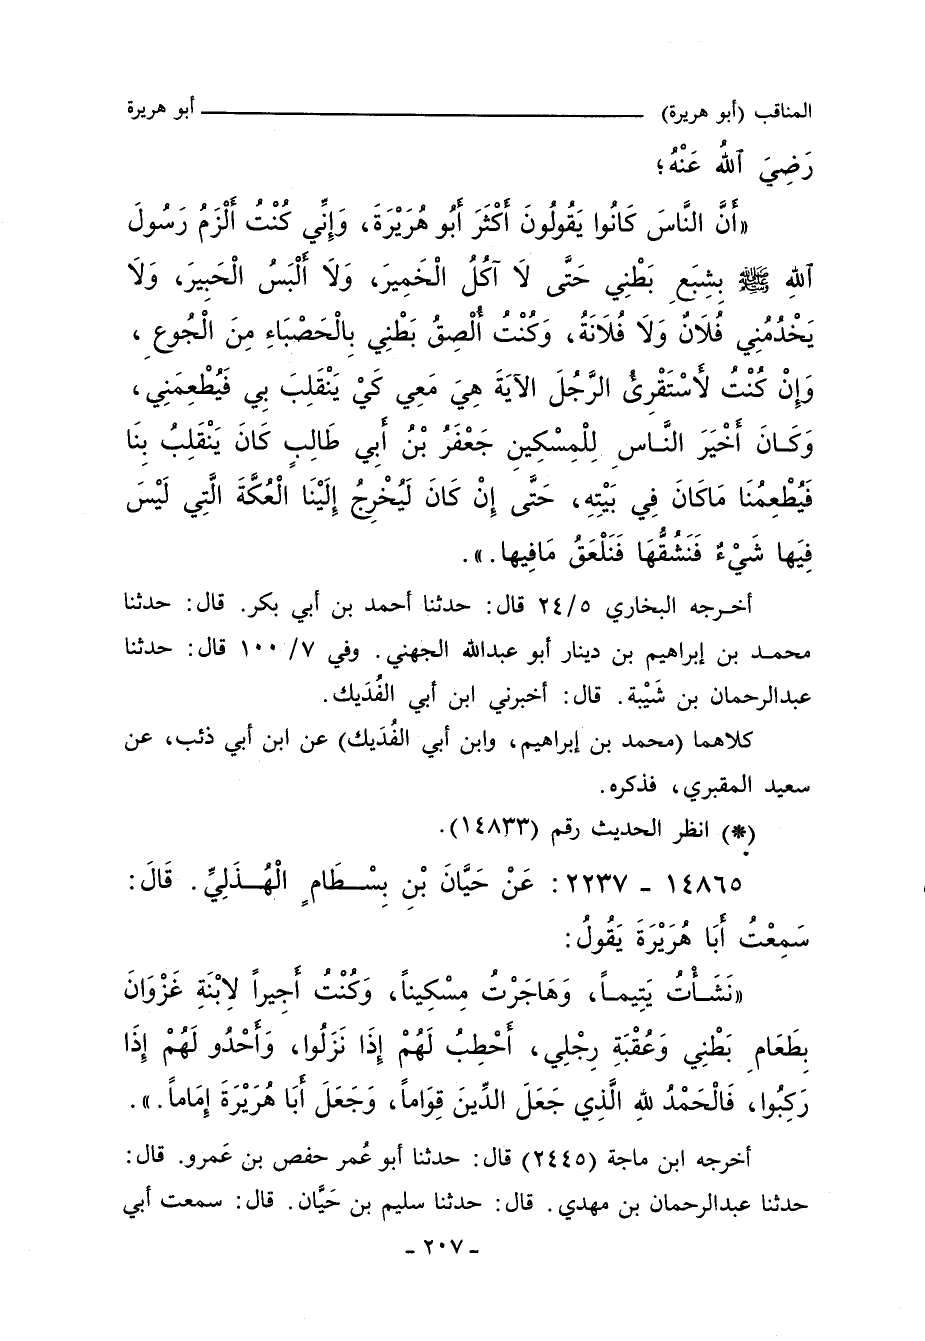 المناقب (أبو هريرة) ـــــــــ أبو هريرة
رَضِيَ ٱللهُ عَنْهُ؛
«أَنَّ النَّاسَ كَانُوا يَقُولُونَ أَكْثَرَ أَبُو هُرَيْرَةَ، وَإِنِّي كُنْتُ أَلْزَمُ رَسُولَ
ٱللهِ ﷺ بِشِبَعِ بَطْنِي حَتَّى لَا آكُلُ الْخَمِيرَ، وَلَا أَلْبَسُ الْحَبِيرَ، وَلَا
يَخْدُمُنِي فُلَانٌ وَلَا فُلَانَةُ، وَكُنْتُ أُلْصِقُ بَطْنِي بِالْحَصْبَاءِ مِنَ الْجُوعِ،
وَإِنْ كُنْتُ لأَسْتَقْرِئُ الرَّجُلَ الآيَةَ هِيَ مَعِي كَيْ يَنْقَلِبَ بِي فَيُطْعِمَنِي،
وَكَـانَ أَخْيَرَ النَّـاسِ لِلْمِسْكِينِ جَعْفَرُ بْنُ أَبِي طَالِبٍ كَانَ يَنْقَلِبُ بِنَا
فَيُطْعِمُنَا مَاكَانَ فِي بَيْتِهِ، حَتَّى إِنْ كَانَ لَيُخْرِجُ إِلَيْنَا الْعُكَّةَ الَّتِي لَيْسَ
فِيَها شَيْءٌ فَنَشُقُّهَا فَنَلْعَقُ مَافِيها.».
أخـرجه البخاري ٥/٢٤ قال: حدثنا أحمد بن أبي بكر. قال: حدثنا
محمـد بن إبراهيم بن دينار أبو عبدالله الجهني. وفي ٧/١٠٠ قال: حدثنا
عبدالرحمان بن شَيْبة. قال: أخبرني ابن أبي الفُدَيك.
كلاهما (محمد بن إبراهيم، وابن أبي الفُدَيك) عن ابن أبي ذئب، عن
سعيد المقبري، فذكره.
(*) انظر الحديث رقم (١٤٨٣٣).
١٤٨٦٥ - ٢٢٣٧: عَنْ حَيَّانَ بْنِ بِسْـطَامٍ الْهُـذَلِيِّ. قَالَ:
سَمِعْتُ أَبَا هُرَيْرَةَ يَقُولُ:
«نَشَـأْتُ يَتِيمـاً، وَهَاجَرْتُ مِسْكِيناً، وَكُنْتُ أَجِيراً لِابْنَةِ غَزْوَانَ
بِطَعَامِ بَطْنِي وَعُقْبَةِ رِجْلِي، أَحْطِبُ لَهُمْ إِذَا نَزَلُوا، وَأَحْدُو لَهُمْ إِذَا
رَكِبُوا، فَالْحَمْدُ للهِ الَّذِي جَعَلَ الدِّينَ قِوَاماً، وَجَعَلَ أَبَا هُرَيْرَةَ إِمَاماً.».
أخرجه ابن ماجة (٢٤٤٥) قال: حدثنا أبو عُمر حفص بن عَمرو. قال:
حدثنا عبدالرحمان بن مهدي. قال: حدثنا سليم بن حَيَّان. قال: سمعت أبي
- ٢٠٧ -